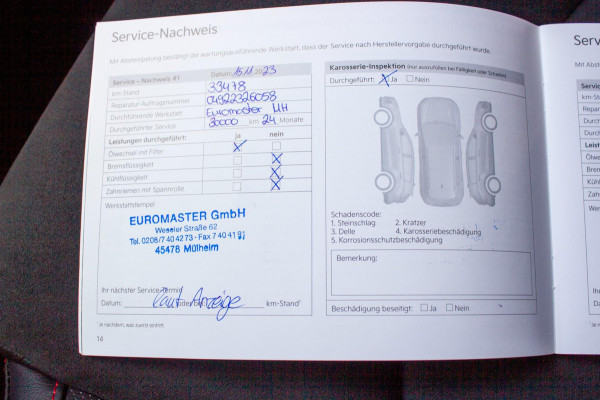 Service-Nachweis
Mit Abstempelung bestätigt die wartungsausführende Werkstatt, dass der Service nach Herstellervorgabe durchgeführt wurde.
Service – Nachweis #1 Datum: 15.11.2023
km-Stand 33478
Reparatur-Auftragsnummer 04922326058
Durchführende Werkstatt Euromaster MH
Durchgeführter Service 30000 km 24 Monate
Leistungen durchgeführt: ja nein
Ölwechsel mit Filter
Bremsflüssigkeit
Kühlflüssigkeit
Zahnriemen mit Spannrolle
Werkstattstempel
EUROMASTER GmbH
Weseler Straße 62
Tel. 0208/7 40 42 73 - Fax 7 40 41 91
45478 Mülheim
Ihr nächster Service-Termin
Datum: oder bei laut Anzeige km-Stand¹
¹ Je nachdem, was zuerst eintritt.
14
Karosserie-Inspektion (nur auszufüllen bei Fälligkeit oder Schäden)
Durchgeführt: Ja Nein
Schadenscode:
1. Steinschlag 2. Kratzer
3. Delle 4. Karosseriebeschädigung
5. Korrosionsschutzbeschädigung
Bemerkung:
Beschädigung beseitigt: Ja Nein
Se
Mit Abste
Servic
km-St
Repara
Durch
Durch
Leist
Ölwe
Brem
Kühlf
Zahn
Wer
Ihr n
Datu
¹ Je na